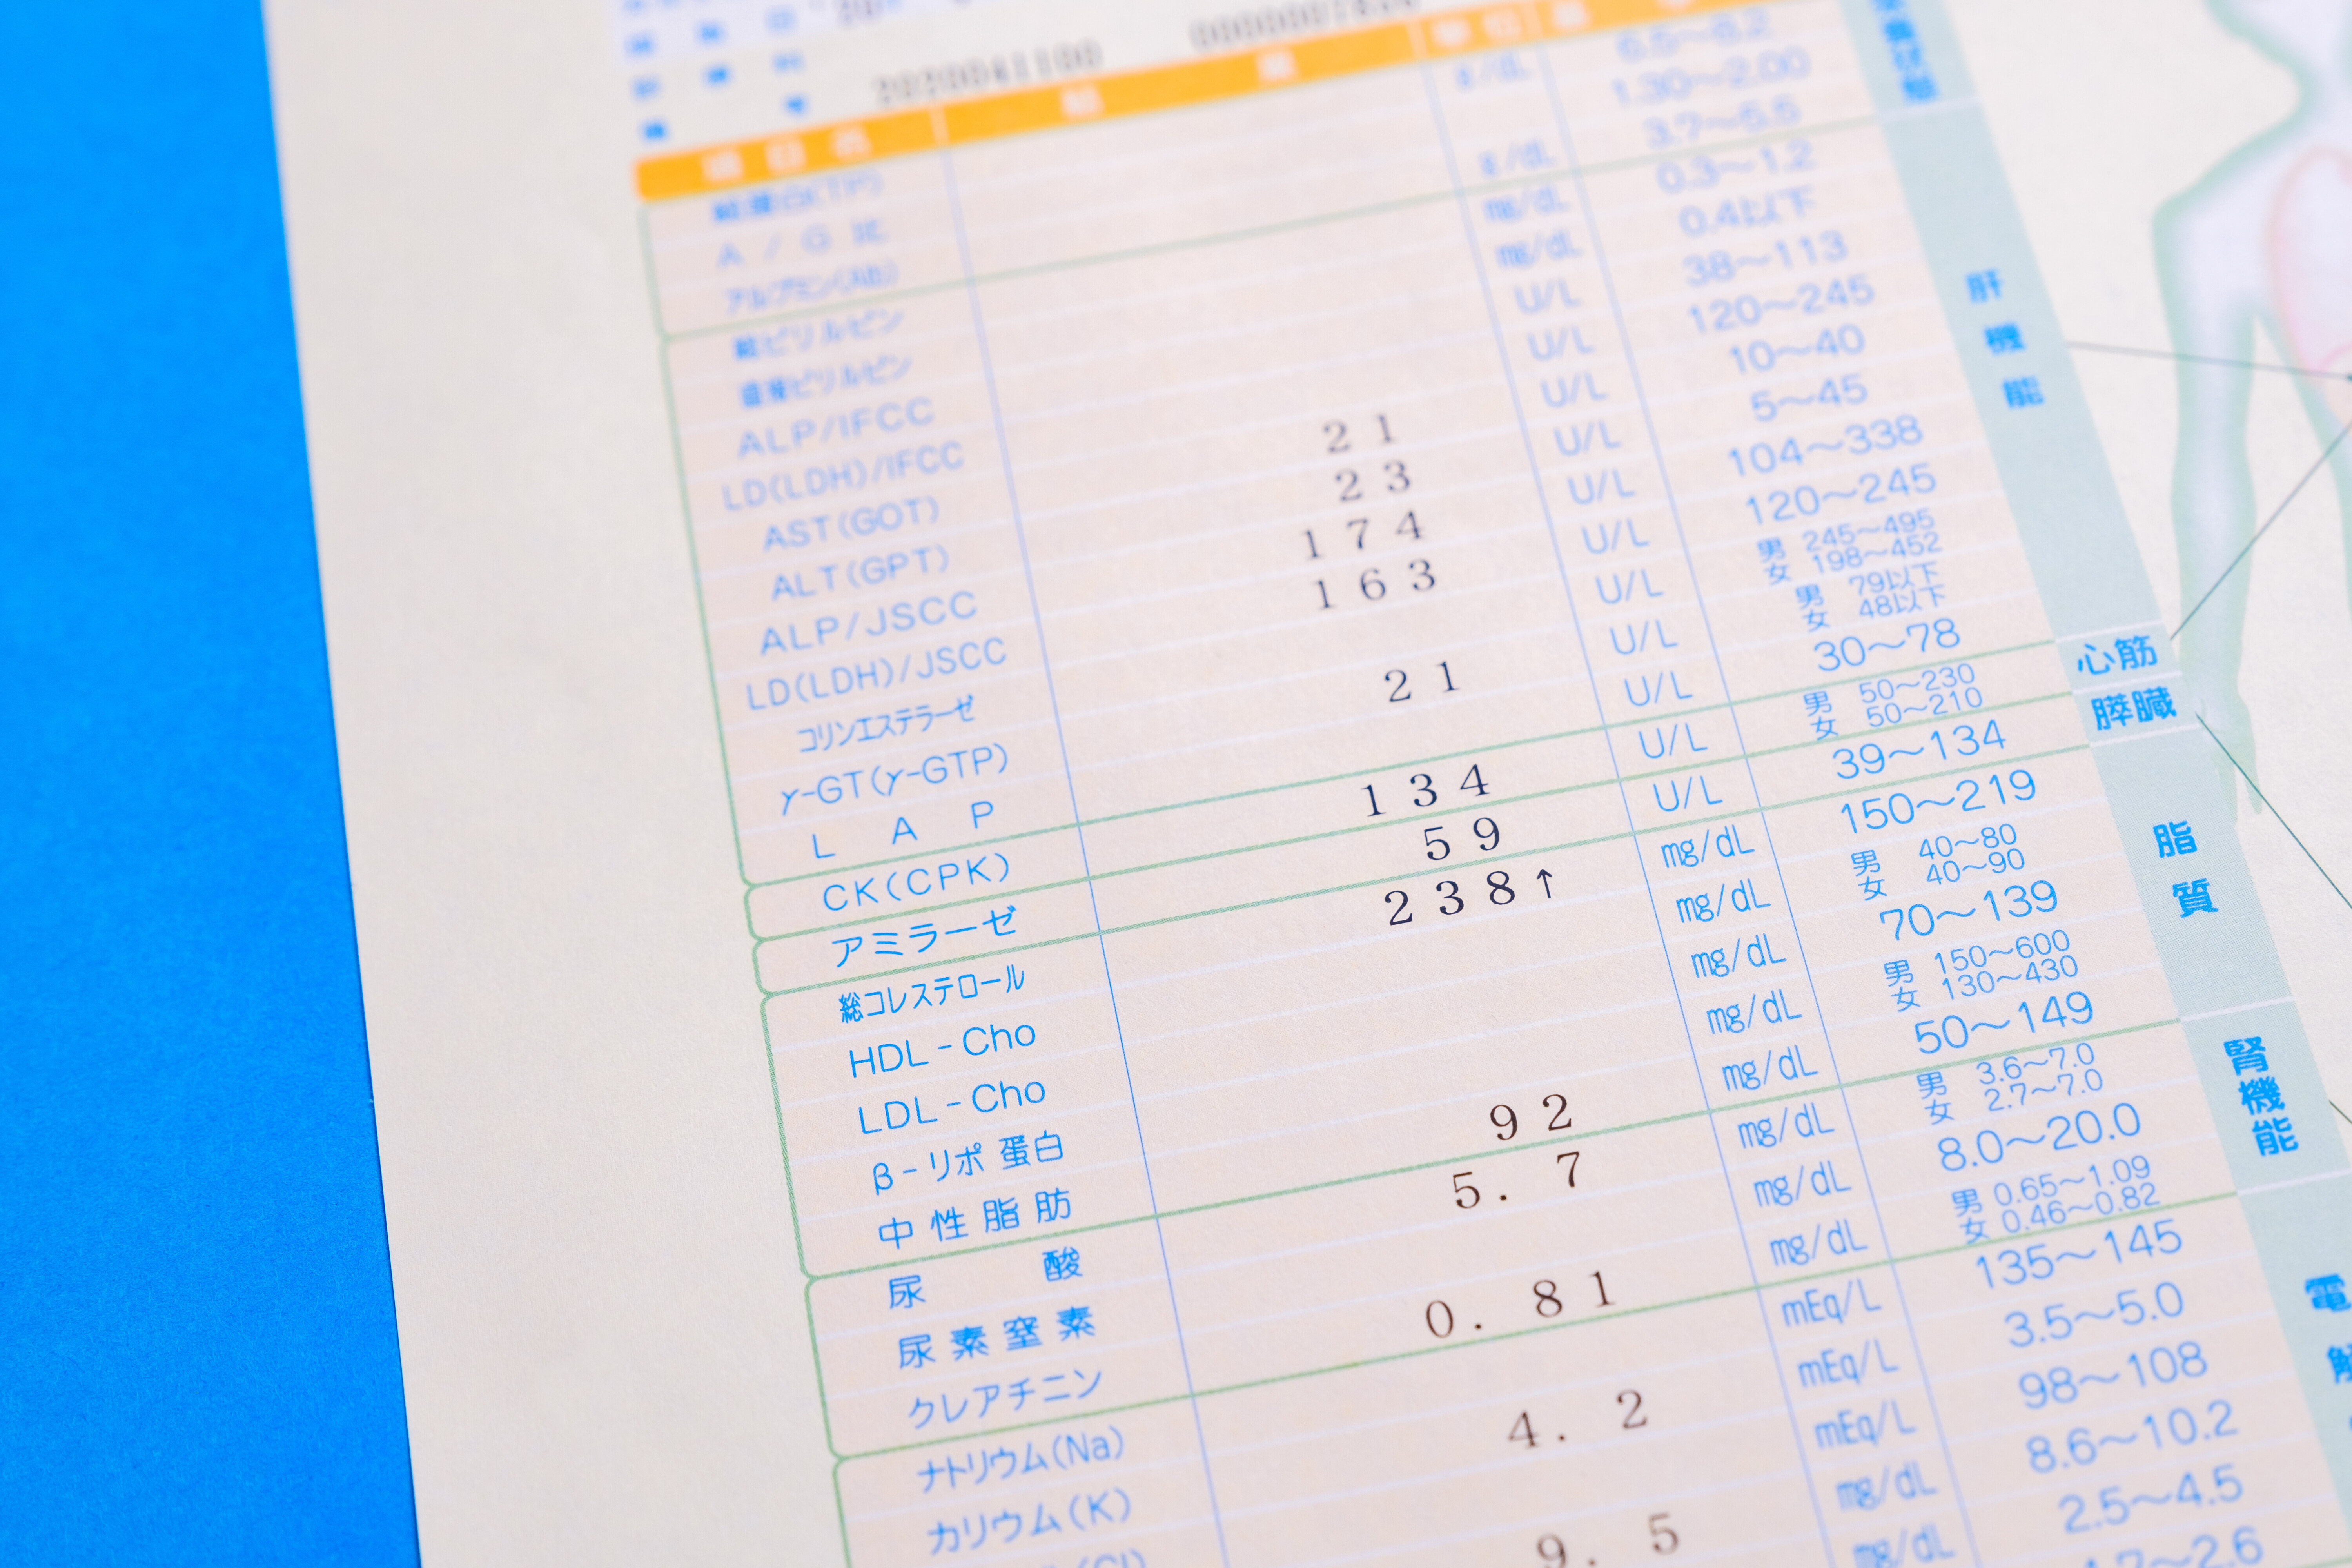 2020041100
項目名 結 果 単位
総蛋白(TP) g/dL 6.5～8.2
A/G 比 1.30～2.00
アルブミン(Alb) g/dL 3.7～5.5
総ビリルビン mg/dL 0.3～1.2
直接ビリルビン mg/dL 0.4以下
ALP/IFCC U/L 38～113
LD(LDH)/IFCC U/L 120～245
AST(GOT) 21 U/L 10～40
ALT(GPT) 23 U/L 5～45
ALP/JSCC 174 U/L 104～338
LD(LDH)/JSCC 163 U/L 120～245
コリンエステラーゼ U/L 男 245～495
女 198～452
γ-GT(γ-GTP) 21 U/L 男 79以下
女 48以下
L A P U/L 30～78
肝機能
CK(CPK) 134 U/L 男 50～230
女 50～210
心筋
アミラーゼ 59 U/L 39～134
膵臓
総コレステロール 238↑ mg/dL 150～219
HDL-Cho mg/dL 男 40～80
女 40～90
LDL-Cho mg/dL 70～139
β-リポ蛋白 mg/dL 男 150～600
女 130～430
中性脂肪 92 mg/dL 50～149
脂質
尿酸 5.7 mg/dL 男 3.6～7.0
女 2.7～7.0
尿素窒素 mg/dL 8.0～20.0
クレアチニン 0.81 mg/dL 男 0.65～1.09
女 0.46～0.82
腎機能
ナトリウム(Na) mEq/L 135～145
カリウム(K) 4.2 mEq/L 3.5～5.0
(Cl) mEq/L 98～108
9.5 mg/dL 8.6～10.2
mg/dL 2.5～4.5
1.7～2.6
電